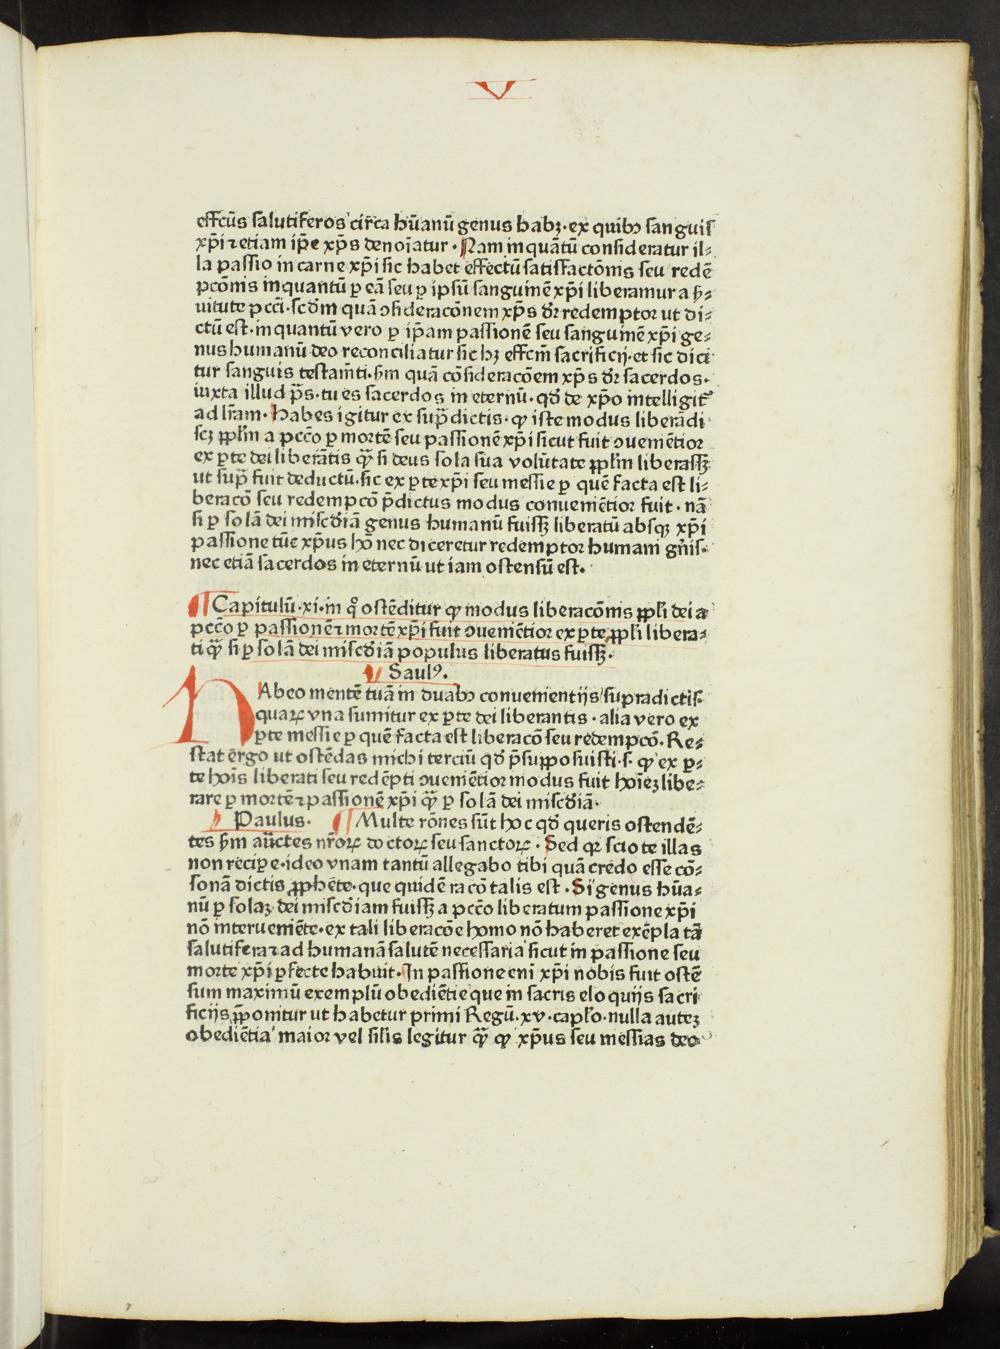 V
effcūs salutiferos circa hūanū genus habꝫ·ex quibꝰ sanguis
xp̄i ⁊ etiam ip̄e xp̄s denoīatur· Nam inquātū consideratur il⸗
la passio in carne xp̄i sic habet effectū satisfactōnis seu redē
pcōnis inquantū ꝑ eā seu ꝑ ipsū sanguinē xp̄i liberamur a ẜ⸗
uitute pcc̄i·scd̄m quā ↄsideracōnem xp̄s dr̄ redemptor ut di⸗
ctū est·inquantū vero ꝑ ip̄am passionē seu sanguinē xp̄i ge⸗
nus humanū deo reconciliatur sic hꝫ effcm̄ sacrificij·et sic dici
tur sanguis testam̄ti·ẜm quā cōsideracōem xp̄s dr̄ sacerdos·
iuxta illud p̄s·tu es sacerdos in eternū·qd̄ de xp̄o intelligit᷑
ad lr̄am· Habes igitur ex sup̄dictis·ꝙ iste modus liberādi
scꝫ pp̄lm̄ a pcc̄o ꝑ mortē seu passionē xp̄i sicut fuit ↄueniētior
ex ꝑte dei liberātis qȝ̄ si deus sola sua volūtate pp̄lm̄ liberassꝫ
ut sup̄ fuit deductū·sic ex ꝑte xp̄i seu messie ꝑ quē facta est li⸗
beracō seu redempcō p̄dictus modus conueniētior fuit·nā
si ꝑ solā dei miscd̄iā genus humanū fuissꝫ liberatū absqꝫ xp̄i
passione tūc xp̄us hō nec diceretur redemptor humani gn̄is·
nec etiā sacerdos in eternū ut iam ostensū est·
¶Capitulū·xi·in qͦ ostēditur ꝙ modus liberacōnis pp̄li dei a
pcc̄o ꝑ passionē ⁊ mortē xp̄i fuit ↄueniētior ex ꝑte pp̄li libera⸗
ti qȝ̄ si ꝑ solā dei miscd̄iā populus liberatus fuissꝫ·
Saulꝰ.
HAbeo mentē tuā in duabꝰ conuenientijs supradictis·
quaꝝ vna sumitur ex ꝑte dei liberantis·alia vero ex
ꝑte messie ꝑ quē facta est liberacō seu redempcō. Re⸗
stat ērgo ut ostēdas michi terciū qd̄ p̄supposuisti·s·ꝙ ex ꝑ⸗
te hoīs liberati seu redēpti ↄueniētior modus fuit hoīeꝫ libe⸗
rare ꝑ mortē ⁊ passionē xp̄i qȝ̄ ꝑ solā dei miscd̄iā·
Paulus· ¶Multe rōnes sūt hoc qd̄ queris ostendē⸗
tes ẜm auctes nr̄oꝝ doctoꝝ seu sanctoꝝ· Sed qꝛ scio te illas
non recipe·ideo vnam tantū allegabo tibi quā credo esse cō⸗
sonā dictis ꝓphete·que quidē racō talis est· Si genus hūa⸗
nū ꝑ solaꝫ dei miscd̄iam fuissꝫ a pcc̄o liberatum passione xp̄i
nō interueniēte·ex tali liberacōe homo nō haberet exēpla tā
salutifera ⁊ ad humanā salutē necessaria sicut in passione seu
morte xp̄i ꝑfecte habuit·In passione eni xp̄i nobis fuit ostē
sum maximū exemplū obediētie que in sacris eloquijs sacri
ficijs p̄ponitur ut habetur primi Regū·xv·capl̄o·nulla auteꝫ
obediētia maior vel silis legitur qȝ̄ ꝙ xp̄us seu messias deo